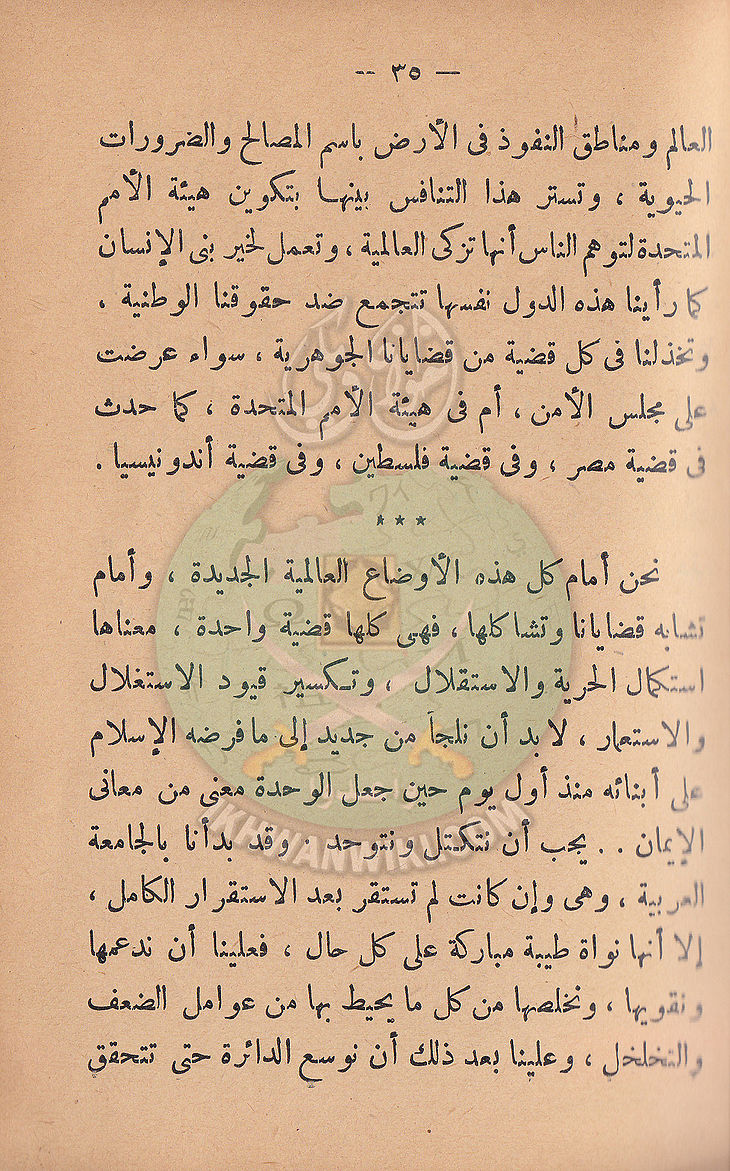 — ٣٥ —
العالم ومناطق النفوذ فى الأرض باسم المصالح والضرورات
الحيوية ، وتستر هذا التنافس بينها بتكوين هيئة الأمم
المتحدة لتوهم الناس أنها تزكى العالمية ، وتعمل لخير بنى الإنسان
كما رأينا هذه الدول نفسها تتجمع ضد حقوقنا الوطنية .
وتخذلنا فى كل قضية من قضايانا الجوهرية ، سواء عرضت
على مجلس الأمن ، أم فى هيئة الأمم المتحدة ، كما حدث
فى قضية مصر ، وفى قضية فلسطين ، وفى قضية أندونيسيا .
* * *
نحن أمام كل هذه الأوضاع العالمية الجديدة ، وأمام
تشابه قضايانا وتشاكلها ، فهى كلها قضية واحدة ، معناها
استكمال الحرية والاستقلال ، وتكسير قيود الاستغلال
والاستعمار ، لا بد أن نلجأ من جديد إلى ما فرضه الإسلام
على أبنائه منذ أول يوم حين جعل الوحدة معنى من معانى
الإيمان . . يجب أن نتكتل ونتوحد . وقد بدأنا بالجامعة
العربية ، وهى وإن كانت لم تستقر بعد الاستقرار الكامل ،
إلا أنها نواة طيبة مباركة على كل حال ، فعلينا أن ندعمها
ونقويها ، ونخلصها من كل ما يحيط بها من عوامل الضعف
والتخلخل ، وعلينا بعد ذلك أن نوسع الدائرة حتى تتحقق
IKHWANWIKI.COM